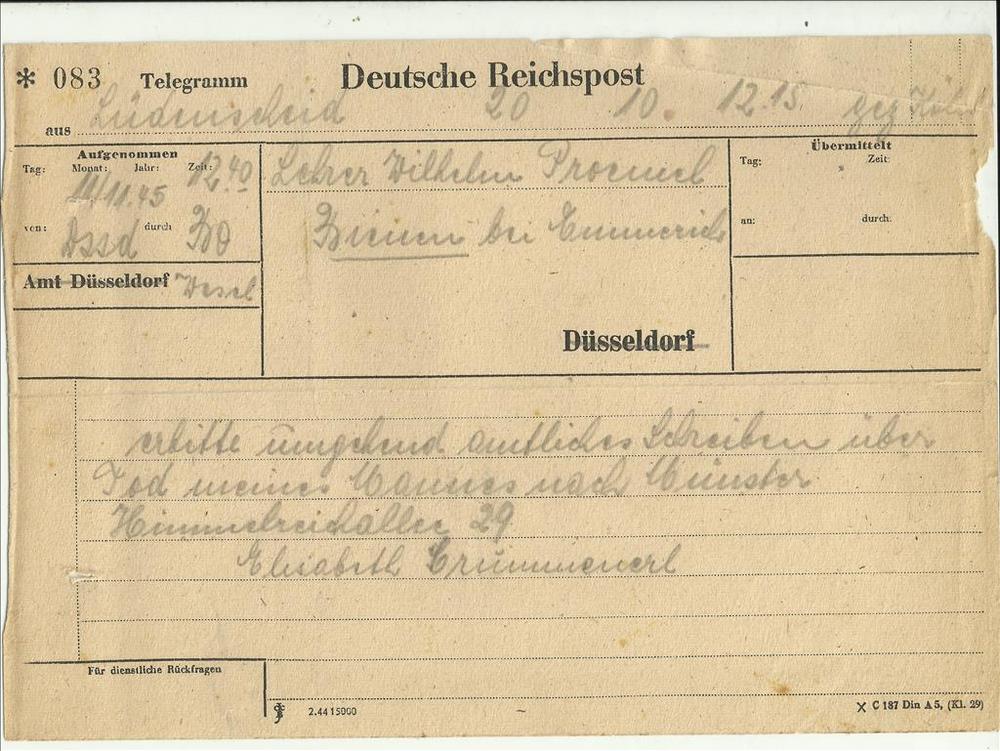 * 083 Telegramm Deutsche Reichspost
aus Lüdenscheid 20 10. 12.15
Aufgenommen
Tag: Monat: Jahr: Zeit:
11/11.45 12.40
von: durch
Dssd
Amt Düsseldorf Wesel
Lehrer Wilhelm
Bienen bei Emmerich
Düsseldorf
Übermittelt
Tag: Zeit:
an: durch:
erbitte umgehend amtliches Schreiben über
Tod meines Mannes nach Münster
Himmelreichallee 29
Elisabeth
Für dienstliche Rückfragen
2.44 15000
C 187 Din A 5, (Kl. 29)